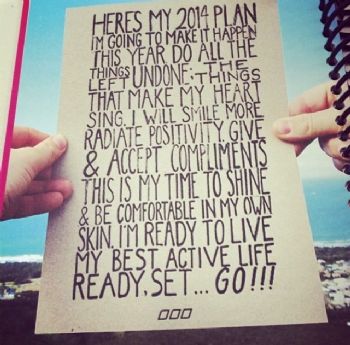 HERES MY 2014 PLAN
I'M GOING TO MAKE IT HAPPEN
THIS YEAR DO ALL THE
THINGS LEFT UNDONE; THE
THINGS
THAT MAKE MY HEART
SING. I WILL SMILE MORE
RADIATE POSITIVITY GIVE
& ACCEPT COMPLIMENTS
THIS IS MY TIME TO SHINE
& BE COMFORTABLE IN MY OWN
SKIN. I'M READY TO LIVE
MY BEST ACTIVE LIFE
READY. SET... GO!!!